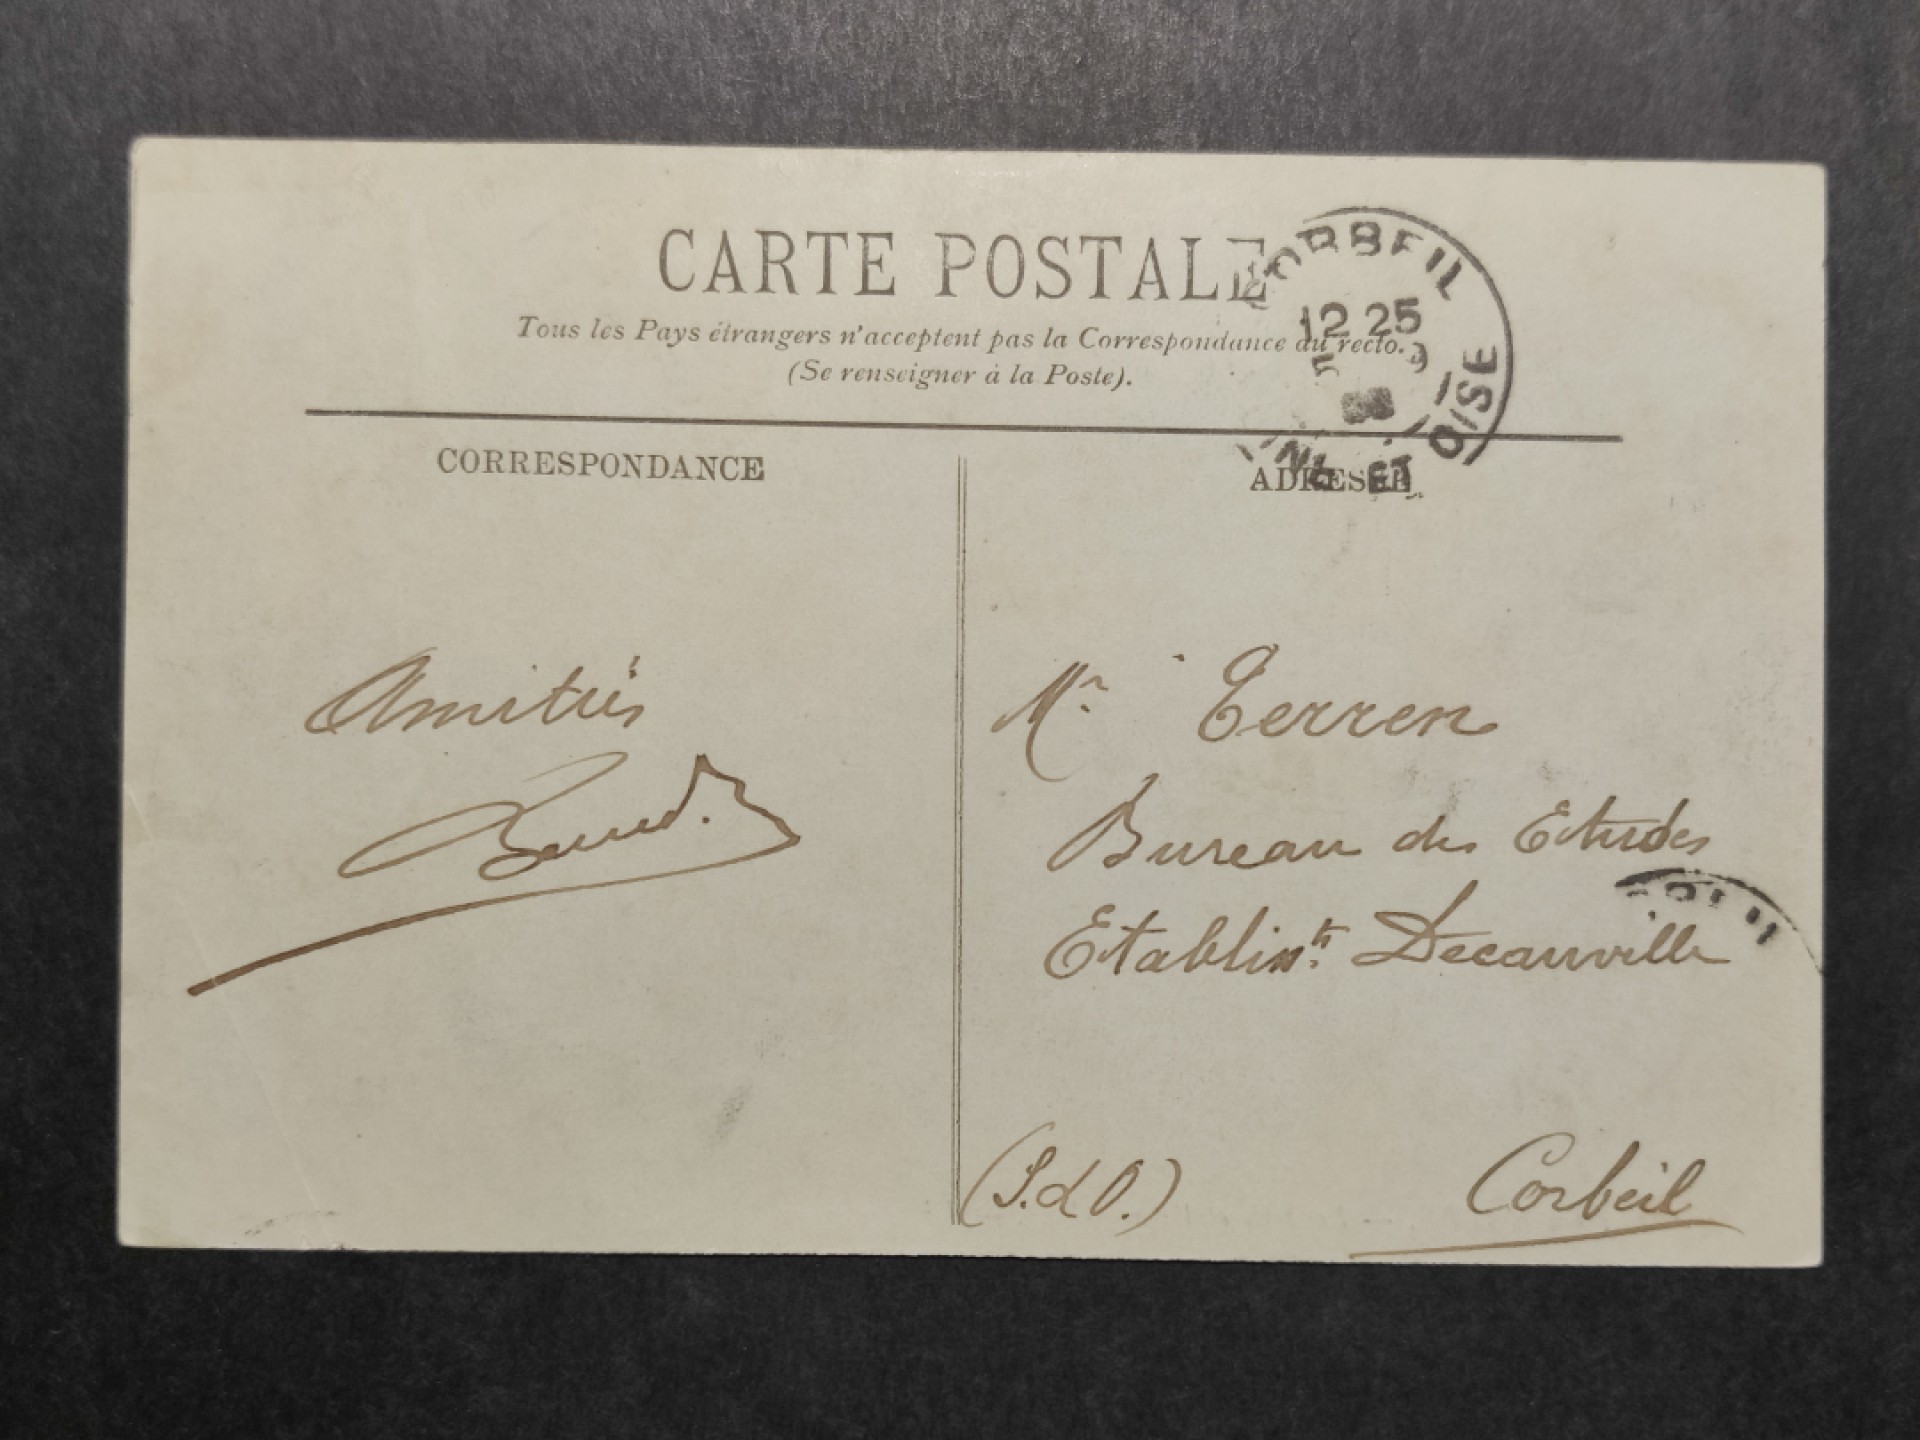 CARTE POSTALE
Tous les Pays étrangers n'acceptent pas la Correspondance au recto.
(Se renseigner à la Poste).
CORBEIL
12 25
ET OISE
CORRESPONDANCE
ADRESSE
Amitiés
Mr Terren
Bureau des Etudes
Etablissts Decauville
(S.d O.)
Corbeil